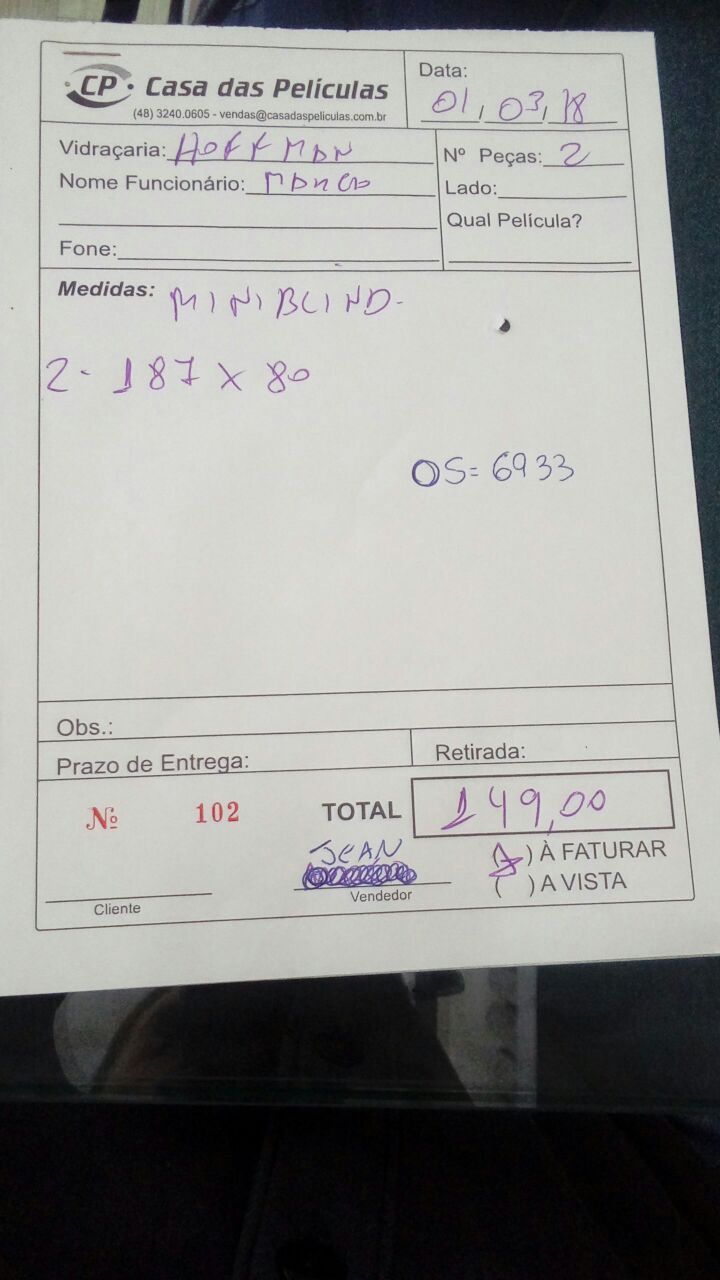 CP · Casa das Películas
(48) 3240.0605 - vendas@casadaspeliculas.com.br
Data: 01, 03, 18
Vidraçaria: HOFFMAN
Nº Peças: 2
Nome Funcionário:
Lado:
Qual Película?
Fone:
Medidas: MINIBLIND-
2- 187 X 80
OS= 6933
Obs.:
Prazo de Entrega:
Retirada:
Nº 102
TOTAL 149,00
JEAN
(X) À FATURAR
( ) A VISTA
Cliente
Vendedor